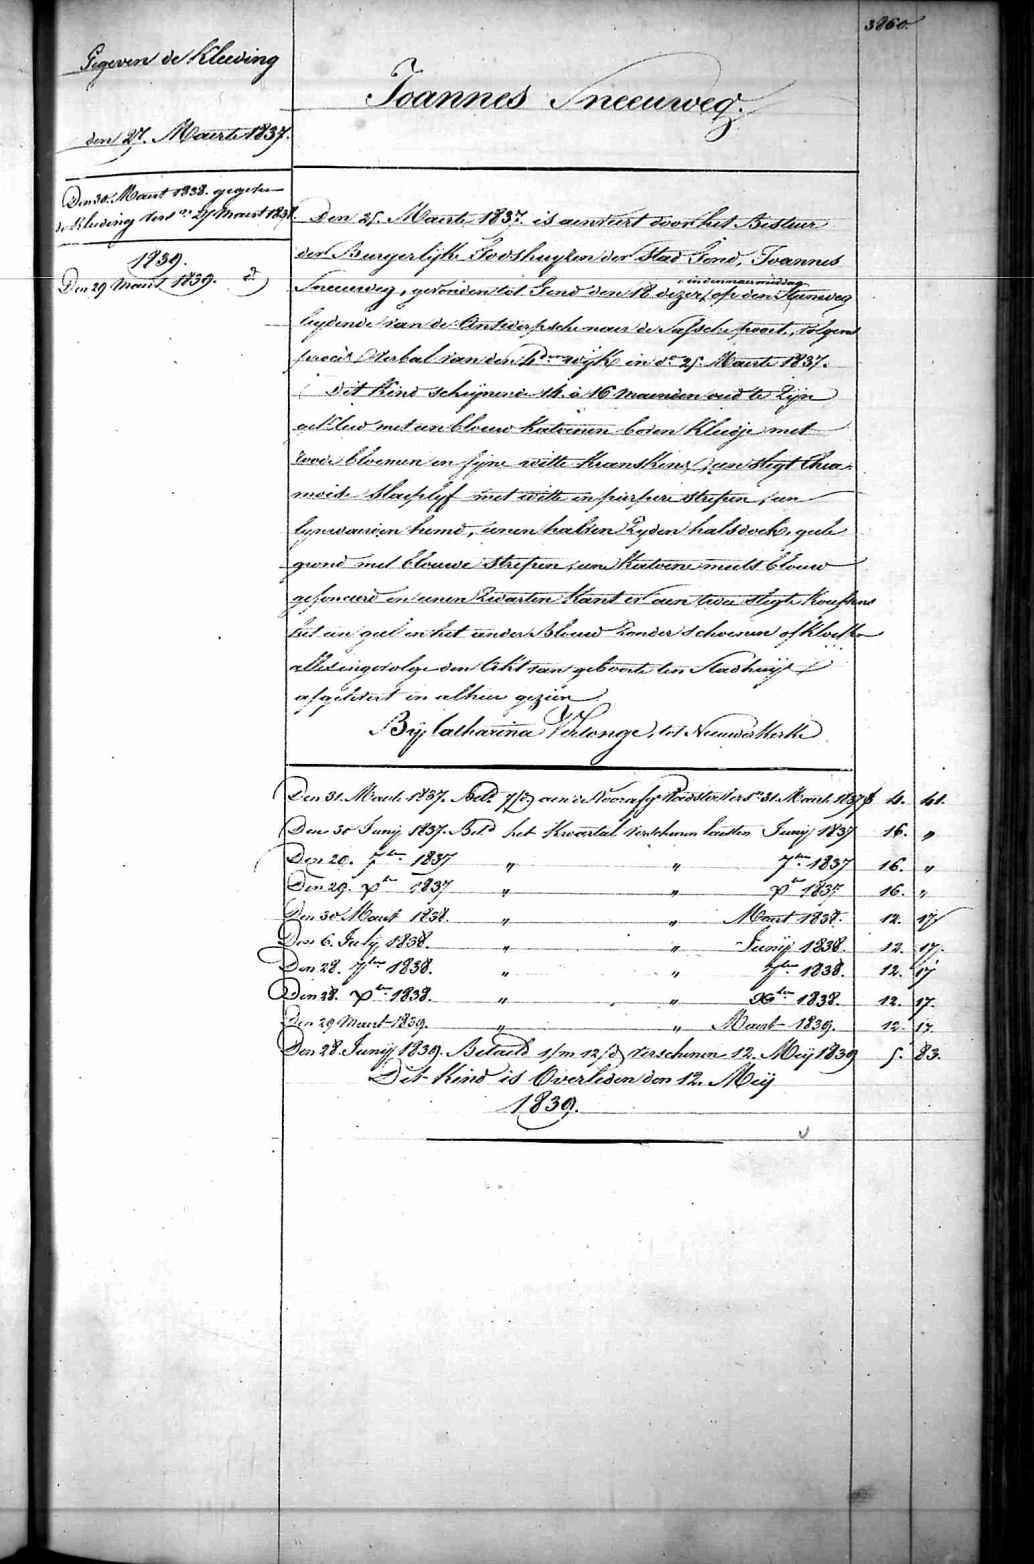 3860.
Gegeven de Kleeding
den 27. Maerte 1837.
Den 30. Maart 1838. gegeven
de Kleeding vers. 27 Maart 1838.
1839.
Den 29 Maart 1839. d°
Joannes Sneeuweg.
Den 25. Maerte 1837. is aenveert door het Bestuer
der Burgerlijke Godshuyzen der Stad Gend, Joannes
in den naer middag
Sneeuweg, gevonden tot Gend den 18 dezer, op den Steenweg
leydende van de Antwerpsche naer de Sassche poort, volgens
proces Verbal van den 4den wijk in d° 25. Maerte 1837.
Dit Kind schijnende 14 à 16 maenden oud te Zijn
gekleed met een blouw Katoenen boven Kleedje met
roode bloemen en fijne witte Kranskens, een slegt
slaeplyf met witte en purpere strepen, een
lynwaeden hemd, eenen halven Zyden halsdoek, geele
grond met blouwe strepen, eene Katoene muts blouw
gefonceerd en eenen Zwarten Kant er aen twee slegte Kousens
het een geel en het ander Blouw Zonder schoenen of Kloefen
alles ingevolge den Akt van geboorte ten Stadhuijse
afgelevert en alhier gezien
Bij Catharina Verlonge, tot Nieuwerkerke
Den 31. Maerte 1837. Betd 7/d aen de Voorafge Voedster Vers. 31. Maerte 1837 f 4. 41.
Den 30 Junij 1837. Betd het Kwartael verschenen lautsten Junij 1837 16. "
Den 20. 7ber 1837 " " 7ber 1837 16. "
Den 29. Xber 1837 " " Xber 1837 16. "
Den 30 Maart 1838. " " Maart 1838. 12. 17
Den 6. July 1838. " " Junij 1838. 12. 17.
Den 28. 7ber 1838. " " 7ber 1838. 12. 17
Den 28. Xber 1838. " " Xber 1838. 12. 17.
Den 29 Maart 1839. " " Maart 1839. 12. 17.
Den 28. Junij 1839. Betaeld 1/m 12/d verschenen 12. Meij 1839 5. 83.
Dit Kind is Overleden den 12. Meij
1839.